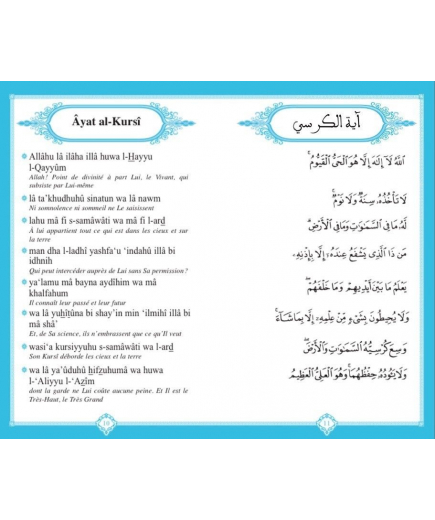 Âyat al-Kursî
Allâhu lâ ilâha illâ huwa l-Hayyu
l-Qayyûm
Allah! Point de divinité à part Lui, le Vivant, qui
subsiste par Lui-même
lâ ta’khudhuhû sinatun wa lâ nawm
Ni somnolence ni sommeil ne Le saisissent
lahu mâ fi s-samâwâti wa mâ fi l-ard
A lui appartient tout ce qui est dans les cieux et sur
la terre
man dha l-ladhî yashfa‘u ‘indahû illâ bi
idhnih
Qui peut intercéder auprès de Lui sans Sa permission ?
ya‘lamu mâ bayna aydîhim wa mâ
khalfahum
Il connaît leur passé et leur futur
wa lâ yuhîtûna bi shay’in min ‘ilmihî illâ bi
mâ shâ’
Et, de Sa science, ils n’embrassent que ce qu’Il veut
wasi‘a kursiyyuhu s-samâwâti wa l-ard
Son Kursî déborde les cieux et la terre
wa lâ ya’ûduhû hifzuhumâ wa huwa
l-‘Aliyyu l-‘Azîm
dont la garde ne Lui coûte aucune peine. Et Il est le
Très-Haut, le Très Grand
10
آية الكرسي
اللَّهُ لَا إِلَٰهَ إِلَّا هُوَ الْحَيُّ الْقَيُّومُ ۚ
لَا تَأْخُذُهُ سِنَةٌ وَلَا نَوْمٌ ۚ
لَهُ مَا فِي السَّمَاوَاتِ وَمَا فِي الْأَرْضِ ۗ
مَن ذَا الَّذِي يَشْفَعُ عِندَهُ إِلَّا بِإِذْنِهِ ۚ
يَعْلَمُ مَا بَيْنَ أَيْدِيهِمْ وَمَا خَلْفَهُمْ ۖ
وَلَا يُحِيطُونَ بِشَيْءٍ مِّنْ عِلْمِهِ إِلَّا بِمَا شَاءَ ۚ
وَسِعَ كُرْسِيُّهُ السَّمَاوَاتِ وَالْأَرْضَ ۖ
وَلَا يَئُودُهُ حِفْظُهُمَا ۚ وَهُوَ الْعَلِيُّ الْعَظِيمُ
11